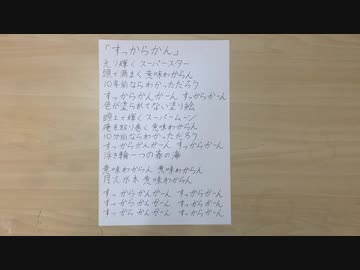 「すっからかん」
光り輝く スーパースター
頭が痛まく 意味わからん
10年前ならわかっただろう
すっからかんかーん すっからかん
色が塗られてない塗り絵
頭上で輝く スーパームーン
俺を取り巻く 意味わからん
10分前ならわかっただろう
すっからかんかーん すっからかん
浮き輪一つの春の海
意味わからん 意味わからん
月火水木 意味わからん
すっからかんかーん すっからかん
すっからかんかーん すっからかん
すっからかんかーん すっからかん